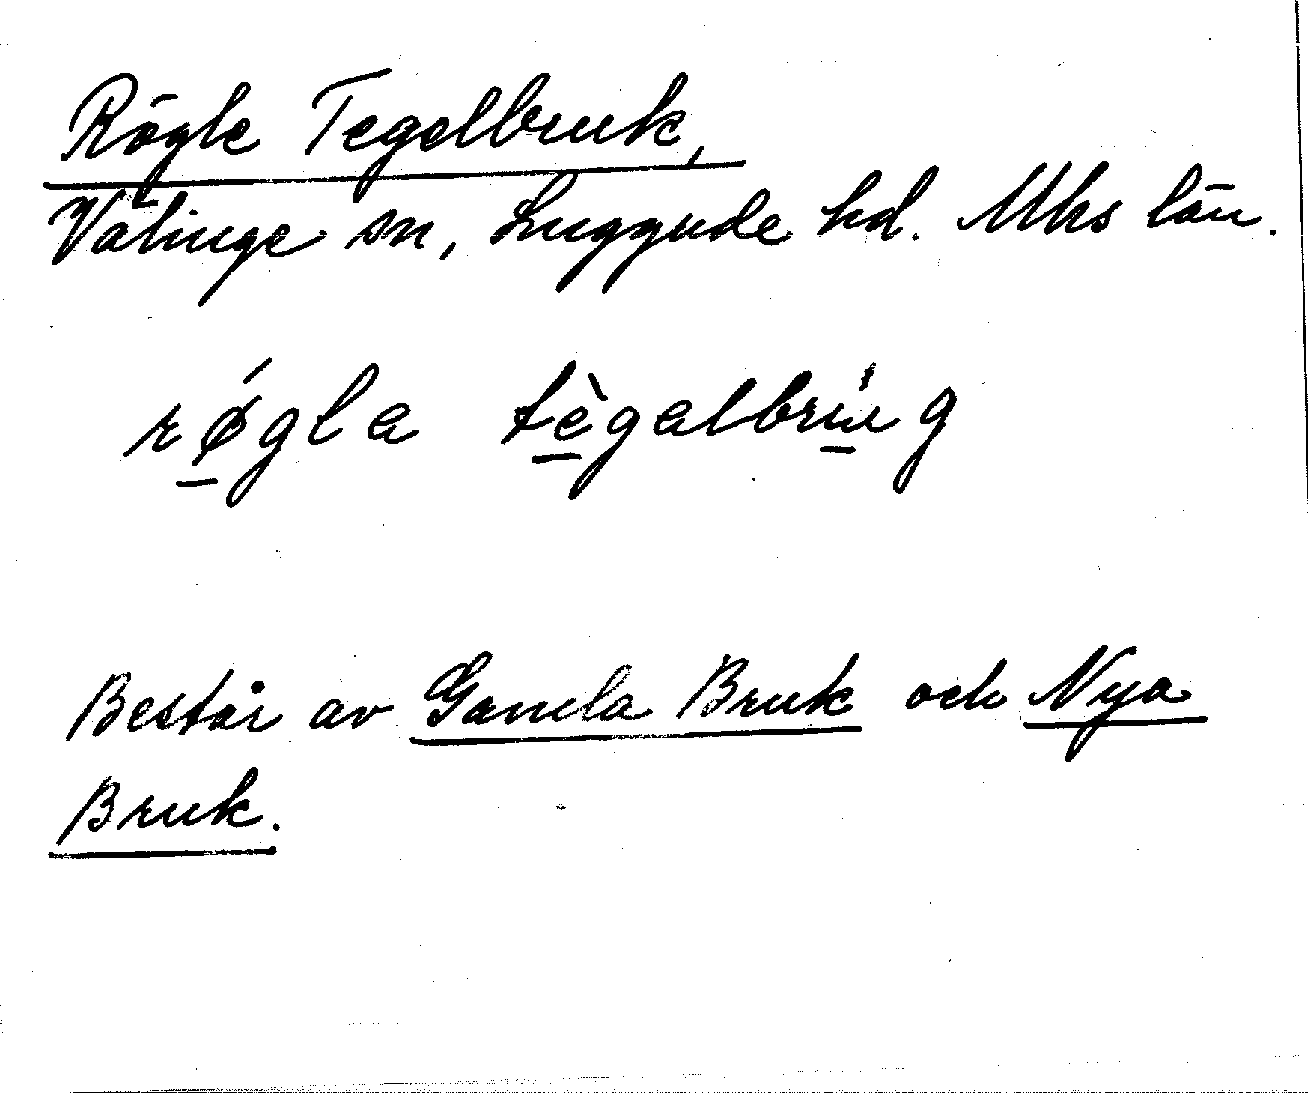 Rögle Tegelbruk,
Välinge sn, Luggude hd. Mhs län.
rǿgla tègalbrúg
Består av Gamla Bruk och Nya
Bruk.